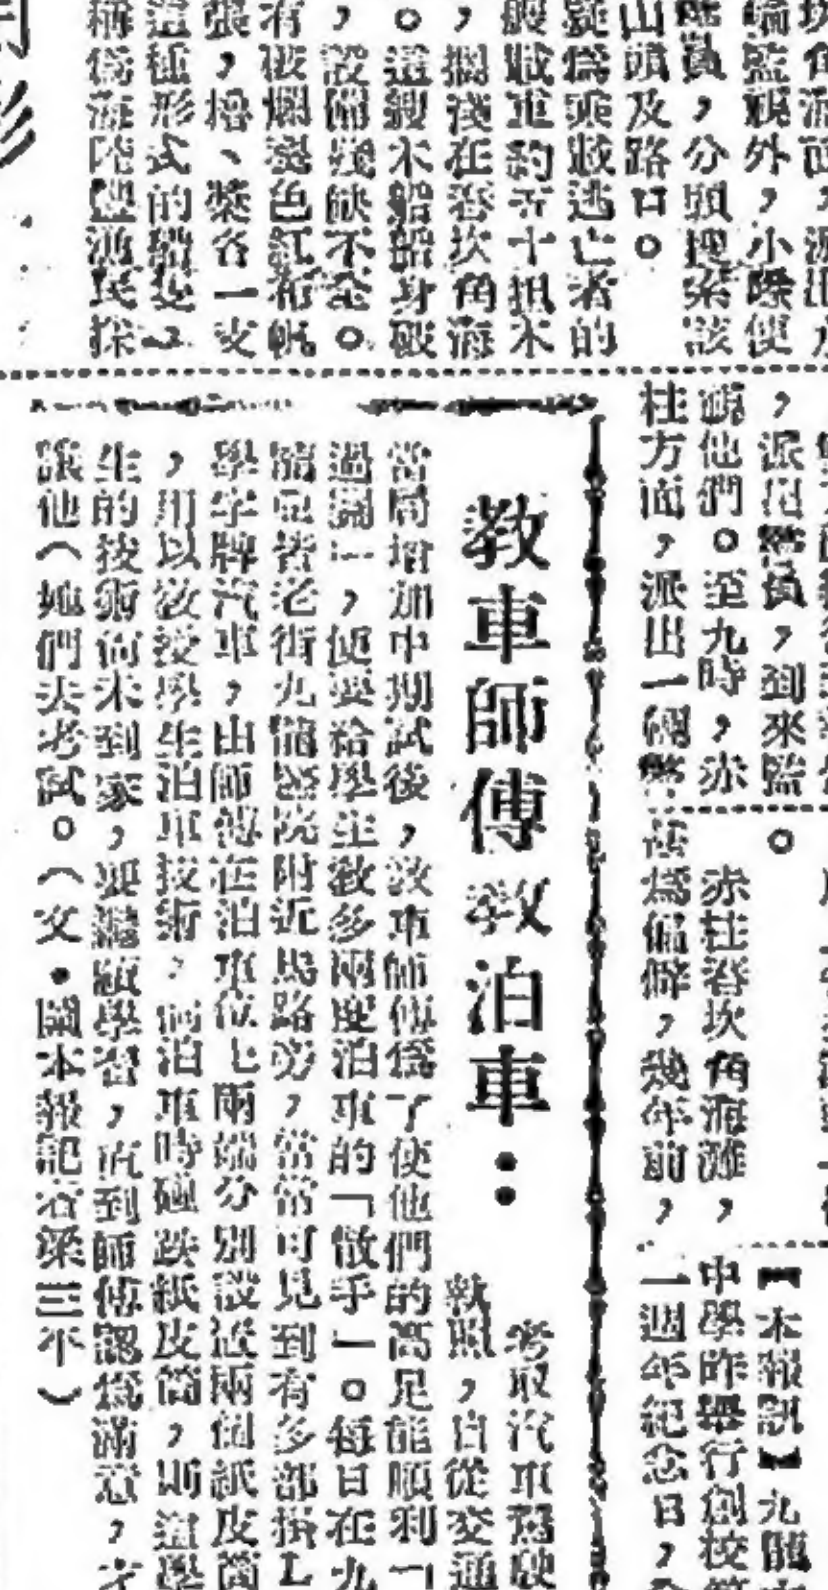 坎角海面，派出水
輪監視外，小隊便
隊員，分頭搜索該
山頭及路口。
疑為乘載逃亡者的
艘載重約五十担木
，擱淺在舂坎角海
。這艘木船船身破
，設備殘缺不全。
有破爛褪色紅布帆
張，櫓、槳各一支
這種形式的船隻，
稱為海陸豐漁民採
，派出警員，到來監
視他們。至九時，赤
柱方面，派出一個警
。
赤柱舂坎角海灘，
甚為偏僻，幾年前，
【本報訊】九龍
中學昨舉行創校
一週年紀念日，
教車師傅教泊車：
考取汽車駕駛
執照，自從交通
當局增加中期試後，教車師傅為了使他們的高足能順利「
過關」，便要給學生教多兩度泊車的「散手」。每日在九
龍亞皆老街九龍醫院附近馬路旁，常常可見到有多部掛L
學字牌汽車，由師傅在泊車位上兩端分別設置兩個紙皮筒
，用以教授學生泊車技術，倘泊車時碰跌紙皮筒，則這學
生的技術尚未到家，要繼續學習，直到師傅認為滿意，才
讓他（她們去考試。（文•圖本報記者梁三不）